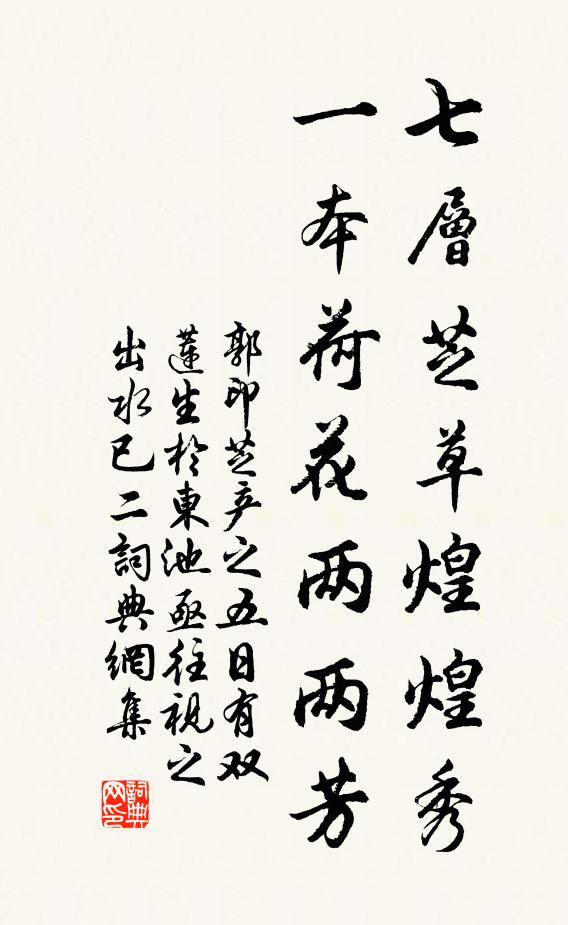 七層芝草煌煌秀
一本荷花两两芳
郭印芝产之五日有双
蓮生於東池亟往視之
出水已二詞典網集
詞典网印